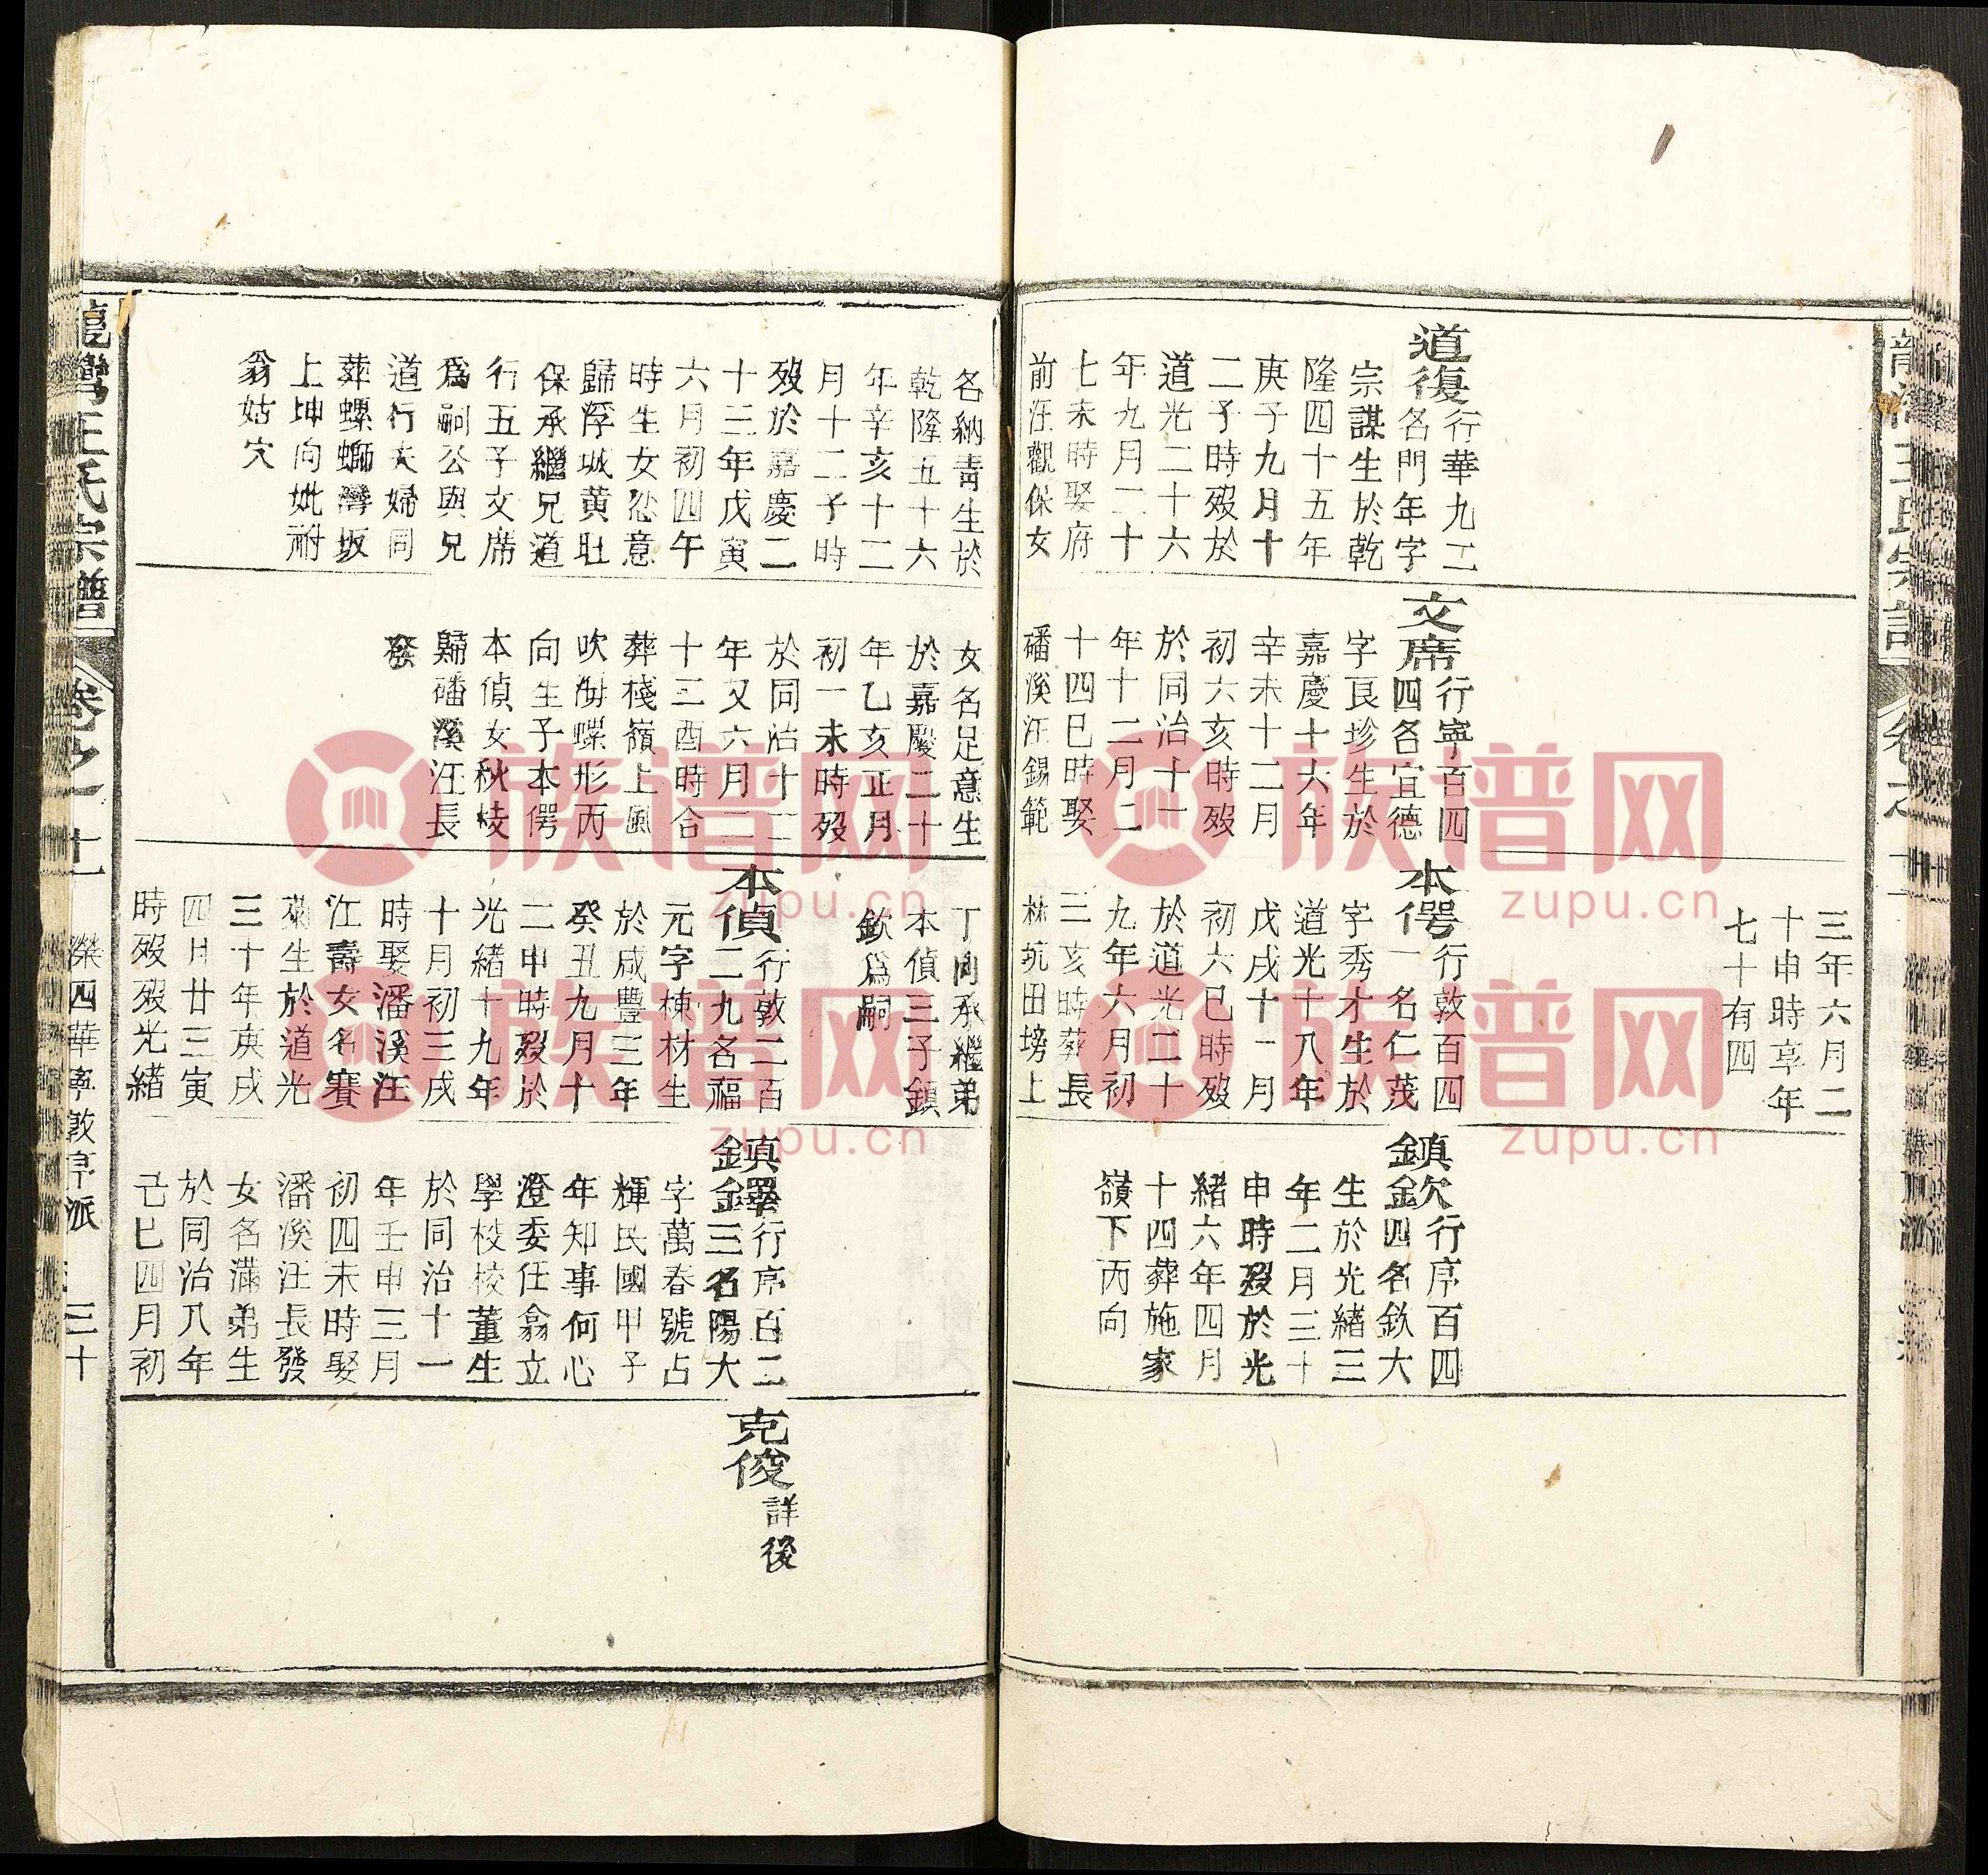 三年六月二
十申時享年
七十有四
道復
行華九二
名門年字
宗謀生於乾
隆四十五年
庚子九月十
二子時歿於
道光二十六
年九月二十
七未時娶府
前汪觀保女
文席
行寧百四
四名宜德
字良珍生於
嘉慶十六年
辛未十二月
初六亥時歿
於同治十一
年十二月二
十四巳時娶
磻溪汪錫範
本愕
行敦百四
一名仁茂
字秀才生於
道光十八年
戊戌十一月
初六巳時歿
於道光二十
九年六月初
二亥時葬長
林坑田塝上
鎮欽
行序百四
四名欽大
生於光緒三
年二月三十
申時歿於光
緒六年四月
十四葬施家
嶺下丙向
名納青生於
乾隆五十六
年辛亥十二
月十二子時
歿於嘉慶二
十三年戊寅
六月初四午
時生女忿意
歸浮城黄壯
保承繼兄道
行五子文席
爲嗣公與兄
道行夫婦同
葬螺螄灣坂
上坤向妣祔
翁姑穴
女名足意生
於嘉慶二十
年乙亥正月
初一未時歿
於同治十二
年又六月二
十三酉時合
葬棧嶺上風
吹蝴蝶形丙
向生子本愕
本偵女秋枝
歸磻溪汪長
發
丁向承繼弟
本偵三子鎮
欽爲嗣
本偵
行敦二百
二九名福
元字棟材生
於咸豐三年
癸丑九月十
二申時歿於
光緒十九年
十月初三戌
時娶潘溪汪
江壽女名賽
菊生於道光
三十年庚戌
四月廿三寅
時歿歿光緒
鎮鐸
行序百二
三名陽大
字萬春號占
輝民國甲子
年知事何心
澄委任翕立
學校校董生
於同治十一
年壬申三月
初四未時娶
潘溪汪長發
女名滿弟生
於同治八年
己巳四月初
克俊
詳後
龍灣王氏宗譜
卷之十一
榮四華寧敦序派
三十
族谱网
zupu.cn
族谱网
zupu.cn
族谱网
zupu.cn
族谱网
zupu.cn